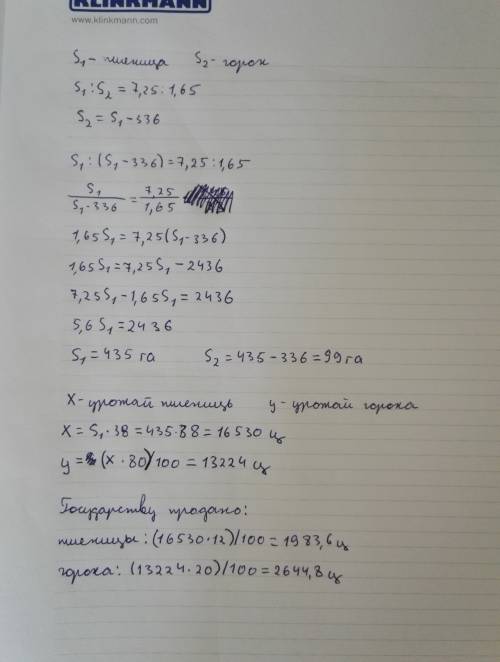 KLINKMANN
www.klinkmann.com
S₁ - пшеница S₂ - горох
S₁ : S₂ = 7,25 : 1,65
S₂ = S₁ - 336
S₁ : (S₁ - 336) = 7,25 : 1,65
S₁/(S₁ - 336) = 7,25/1,65
1,65S₁ = 7,25(S₁ - 336)
1,65S₁ = 7,25S₁ - 2436
7,25S₁ - 1,65S₁ = 2436
5,6S₁ = 2436
S₁ = 435 га S₂ = 435 - 336 = 99 га
X - урожай пшениць y - урожай гороха
X = S₁ · 38 = 435 · 38 = 16530 ц
y = (X · 80)/100 = 13224 ц
Государству продано:
пшеницы: (16530 · 12)/100 = 1983,6 ц
гороха: (13224 · 20)/100 = 2644,8 ц